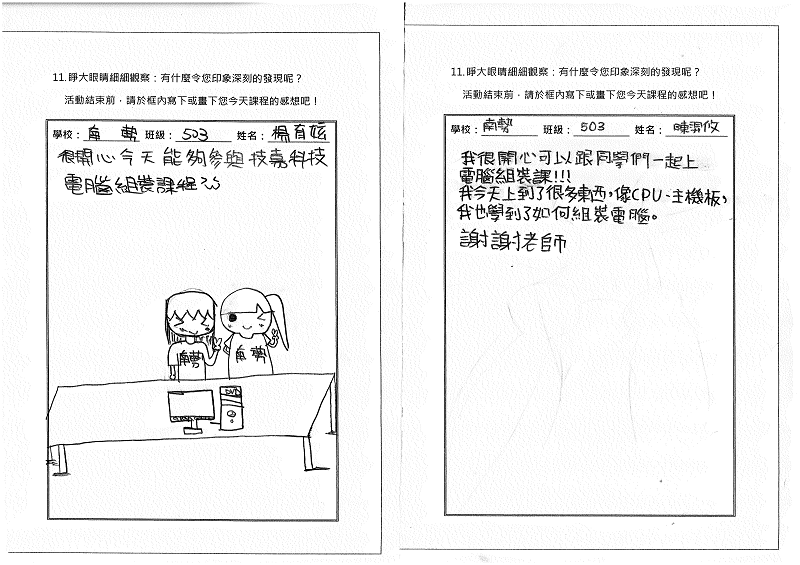 11.睜大眼睛細細觀察：有什麼令您印象深刻的發現呢？
活動結束前，請於框內寫下或畫下您今天課程的感想吧！
學校：南勢 班級：503 姓名：楊育妶
很開心今天能夠參與技嘉科技
電腦組裝課程
南勢
南勢
DVD
11.睜大眼睛細細觀察：有什麼令您印象深刻的發現呢？
活動結束前，請於框內寫下或畫下您今天課程的感想吧！
學校：南勢 班級：503 姓名：陳
我很開心可以跟同學們一起上
電腦組裝課!!!
我今天上到了很多東西，像CPU、主機板，
我也學到了如何組裝電腦。
謝謝老師